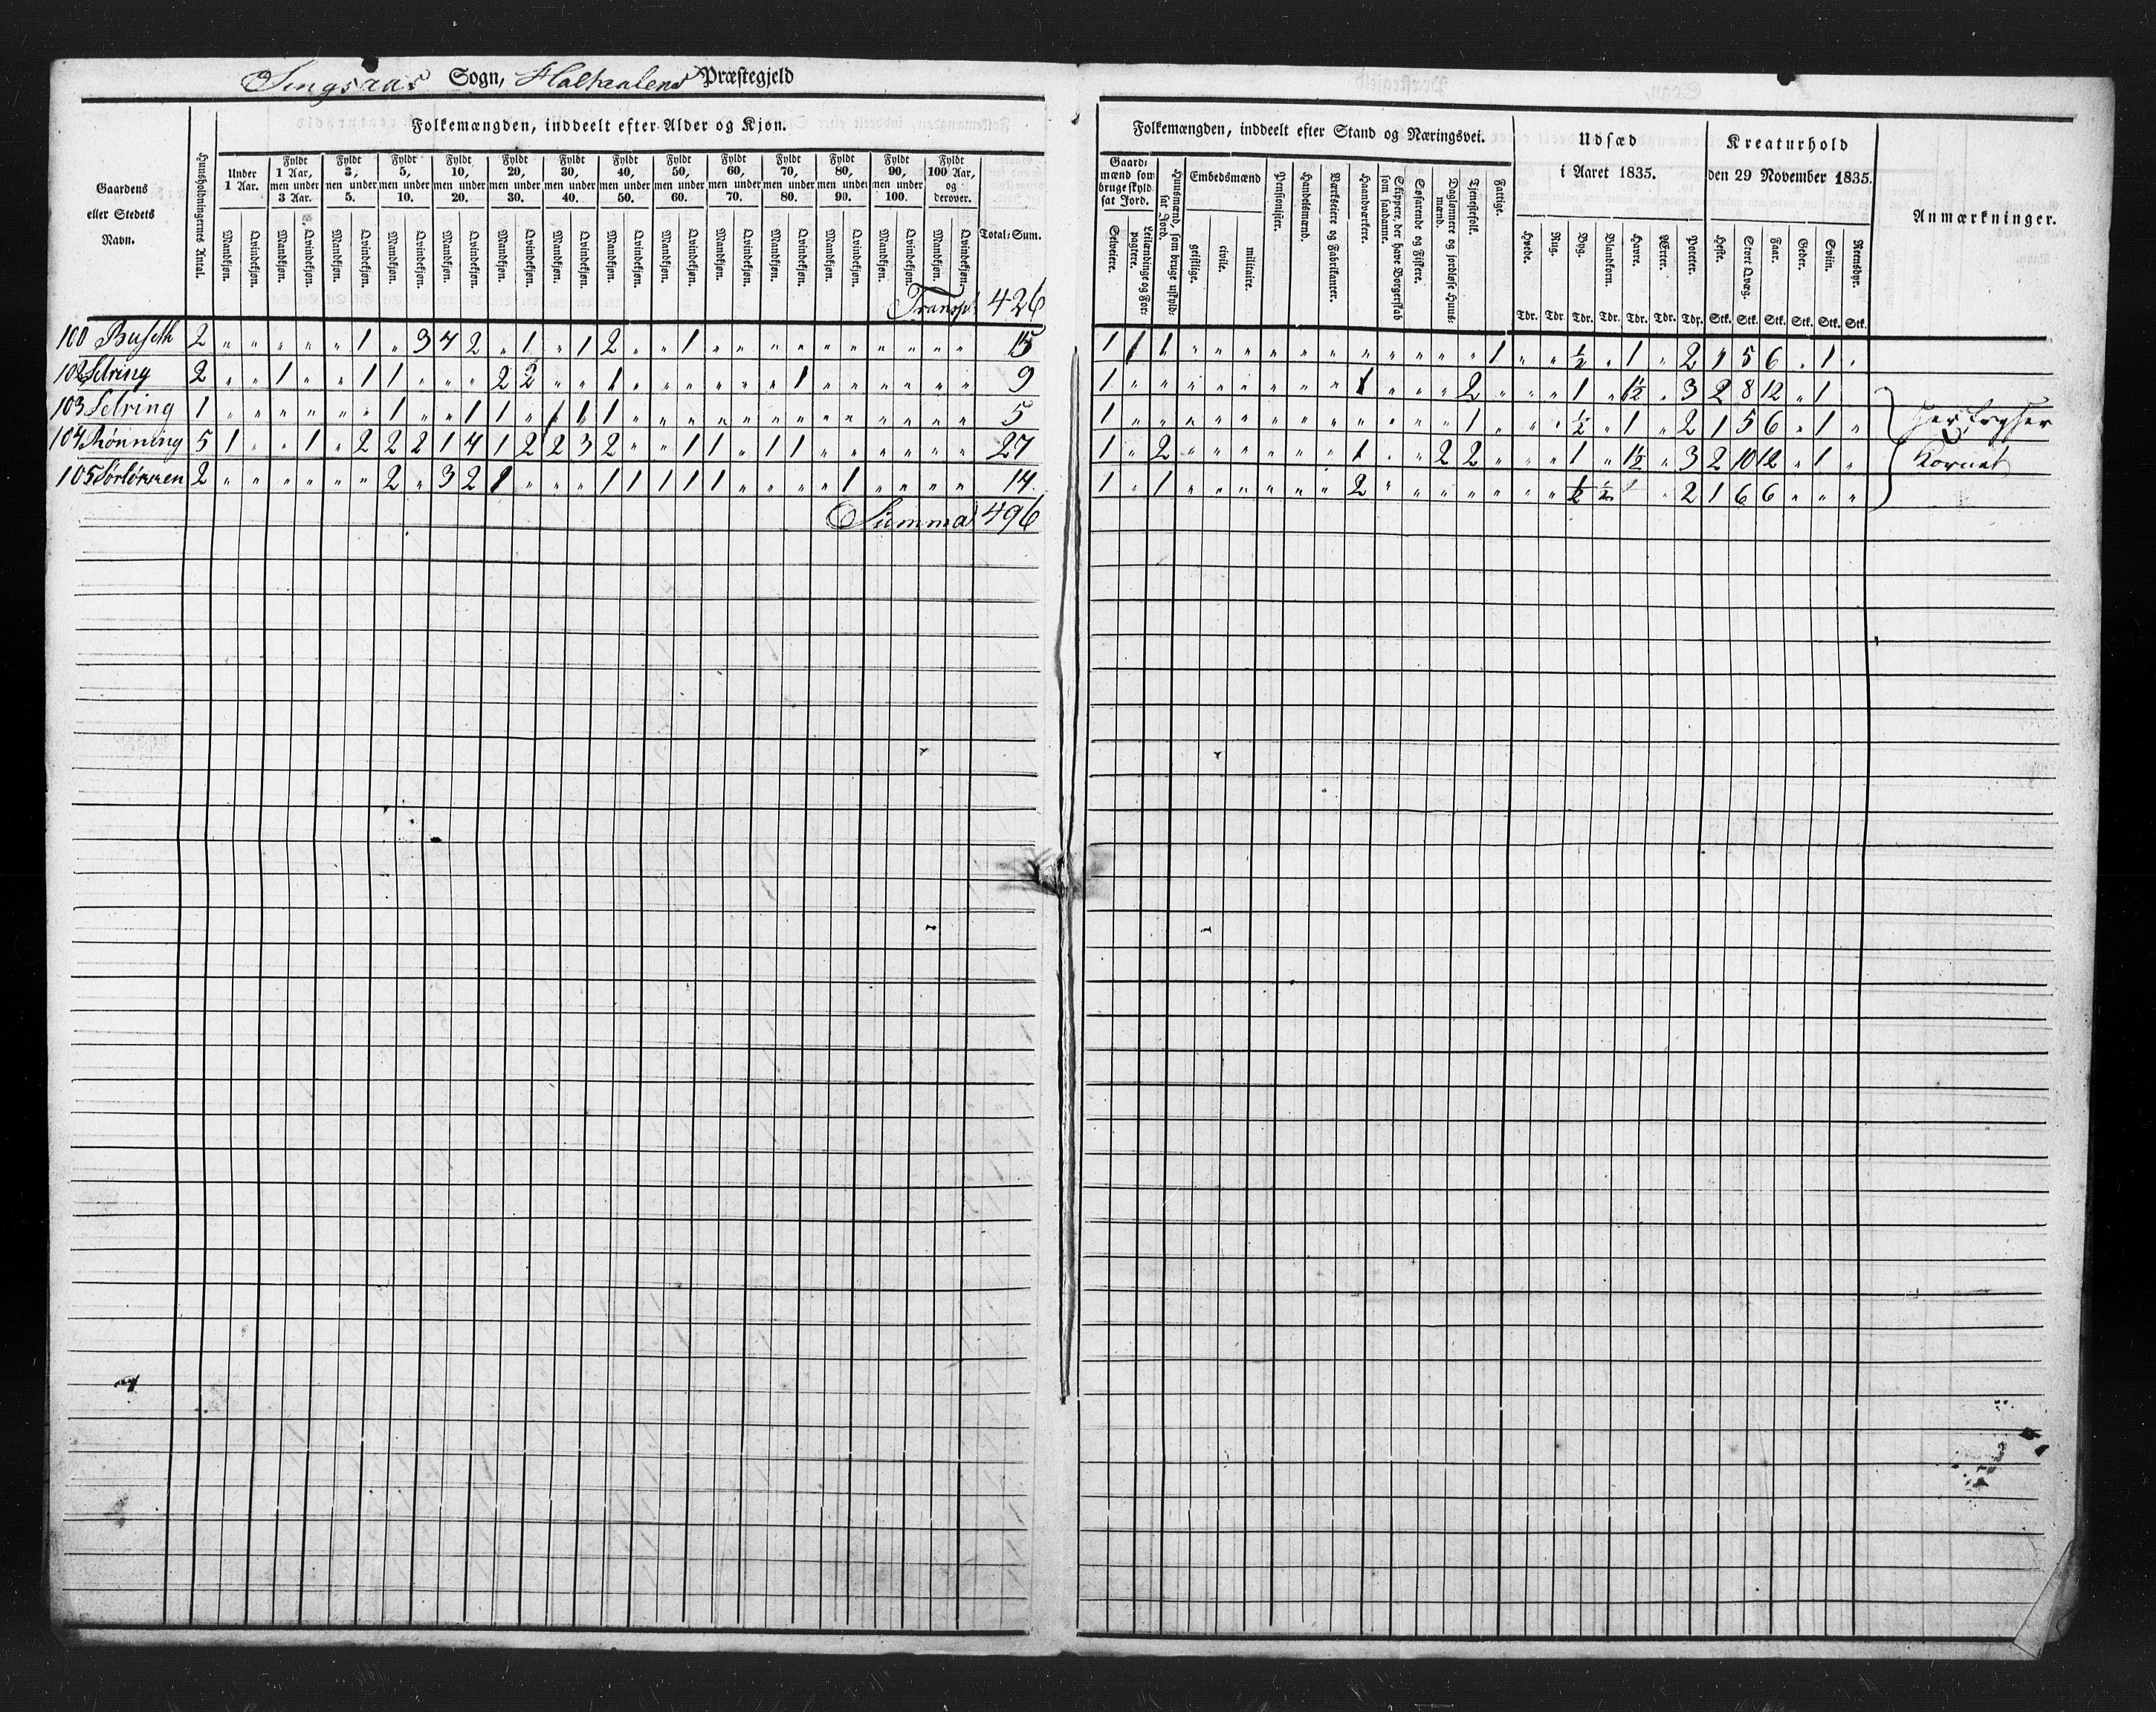 Singsaas Sogn, Holtaalens Præstegjeld
Folkemængden, inddeelt efter Alder og Kjøn.
Gaardens eller Stedets Navn.
Huusholdningernes Antal.
Under 1 Aar.
Fyldt 1 Aar, men under 3 Aar.
Fyldt 3, men under 5.
Fyldt 5, men under 10.
Fyldt 10, men under 20.
Fyldt 20, men under 30.
Fyldt 30, men under 40.
Fyldt 40, men under 50.
Fyldt 50, men under 60.
Fyldt 60, men under 70.
Fyldt 70, men under 80.
Fyldt 80, men under 90.
Fyldt 90, men under 100.
Fyldt 100 Aar, og derover.
Total-Sum.
Mandkjøn. Qvindekjøn. Mandkjøn. Qvindekjøn. Mandkjøn. Qvindekjøn. Mandkjøn. Qvindekjøn. Mandkjøn. Qvindekjøn. Mandkjøn. Qvindekjøn. Mandkjøn. Qvindekjøn. Mandkjøn. Qvindekjøn. Mandkjøn. Qvindekjøn. Mandkjøn. Qvindekjøn. Mandkjøn. Qvindekjøn. Mandkjøn. Qvindekjøn. Mandkjøn. Qvindekjøn. Mandkjøn. Qvindekjøn.
Transp. 426
100 Buseth 2 " " " " " 1 " 3 4 2 " 1 " 1 2 " " 1 " " " " " " " " " " 15
102 Setring 2 " " 1 " " 1 1 " " " 2 2 " " 1 " " " " " " 1 " " " " " " 9
103 Setring 1 " " " " " " 1 " " 1 1 " 1 1 1 " " " " " " " " " " " " " 5
104 Rønning 5 1 " " 1 " 2 2 2 1 4 1 2 2 3 2 " " 1 1 " 1 1 " " " " " " 27
105 Sørløkken 2 " " " " " " 2 " 3 2 1 " " " 1 1 1 1 1 " " " " 1 " " " " 14
Summa 496
Folkemængden, inddeelt efter Stand og Næringsvei.
Gaardmænd som bruge skyldsat Jord.
Selveiere.
Leilændinge og Forpagtere.
Huusmænd, som bruge uskyldsat Jord.
Embedsmænd
geistlige.
civile.
militaire.
Pensionister.
Handelsmænd.
Værkseiere og Fabrikanter.
Haandværkere.
Skippere, der have Borgerskab som saadanne.
Søfarende og Fiskere.
Daglønnere og jordløse Huusmænd.
Tjenestefolk.
Fattige.
Udsæd i Aaret 1835.
Hvede. Rug. Byg. Blandkorn. Havre. Ærter. Poteter.
Tdr. Tdr. Tdr. Tdr. Tdr. Tdr. Tdr.
Kreaturhold den 29 November 1835.
Heste. Stort Qvæg. Faar. Geder. Sviin. Reensdyr.
Stk. Stk. Stk. Stk. Stk. Stk.
Anmærkninger.
1 1 1 " " " " " " " " " " " 1 " " ½ " 1 " 2 1 5 6 " 1 "
1 " " " " " " " " 1 " " " 2 " " " 1 " 1½ " 3 2 8 12 " 1
1 " " " " " " " " " " " " 1 " " " ½ " 1 " 2 1 5 6 " 1 "
1 " 2 " " " " " " 1 " " 2 2 " " " 1 " 1½ " 3 2 10 12 " 1 "
1 " 1 " " " " " " 2 " " " " " " " ½ ½ " 2 1 6 6 " " "
Kornet